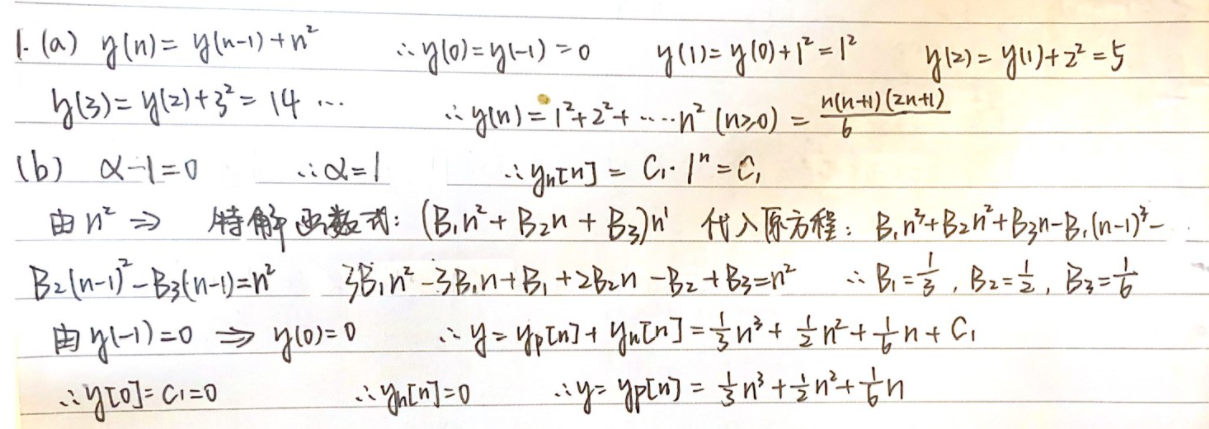 1. (a) y(n) = y(n-1) + n² ∴ y(0) = y(-1) = 0 y(1) = y(0) + 1² = 1² y(2) = y(1) + 2² = 5
y(3) = y(2) + 3² = 14 … ∴ y(n) = 1² + 2² + ⋯⋯ n² (n≥0) = n(n+1)(2n+1)/6
(b) α - 1 = 0 ∴ α = 1 ∴ yₕ[n] = C₁ · 1ⁿ = C₁
由 n² ⇒ 特解函数式: (B₁n² + B₂n + B₃)n¹ 代入原方程: B₁n³ + B₂n² + B₃n - B₁(n-1)³ -
B₂(n-1)² - B₃(n-1) = n² 3B₁n² - 3B₁n + B₁ + 2B₂n - B₂ + B₃ = n² ∴ B₁ = 1/3 , B₂ = 1/2 , B₃ = 1/6
由 y(-1) = 0 ⇒ y(0) = 0 ∴ y = yₚ[n] + yₕ[n] = 1/3 n³ + 1/2 n² + 1/6 n + C₁
∴ y[0] = C₁ = 0 ∴ yₕ[n] = 0 ∴ y = yₚ[n] = 1/3 n³ + 1/2 n² + 1/6 n